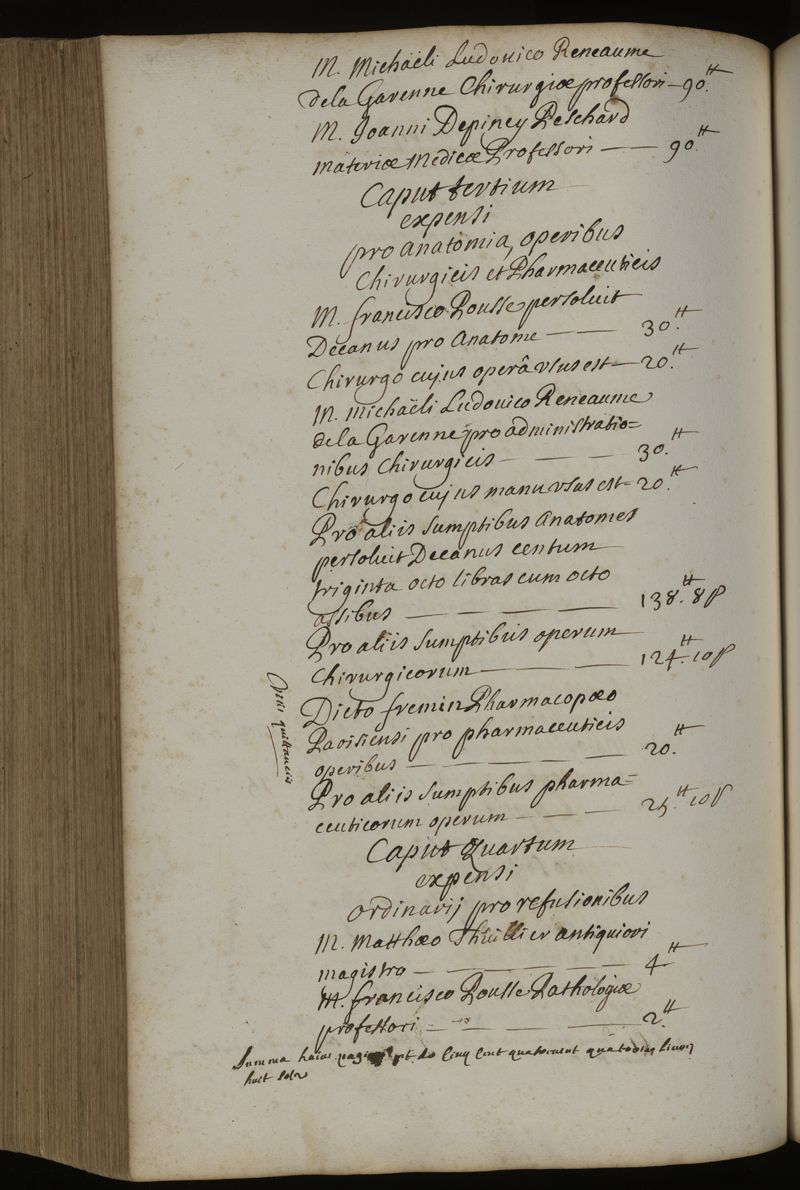 M. Michaëli Ludovico Reneaume
dela Garenne Chirurgiæ professori — 90.tt
M. Joanni Depiney Peschard
materiæ Medicæ Professori — — 90.tt
Caput tertium
expensi
pro anatomia, operibus
Chirurgicis et Pharmaceuticis
M. francisco Pousse persoluit
Decanus pro Anatome — — 30.tt
Chirurgo cujus operâ vsus est — 20.tt
M. michaëli Ludouico Reneaume
dela Garenne pro administratio=
nibus Chirurgicis — — — 30.tt
Chirurgo cujus manu vsus est — 20.tt
Pro aliis sumptibus Anatomes
persoluit Decanus centum
triginta octo libras cum octo
assibus — — — — 138.tt 8 ß
Pro aliis sumptibus operum
Chirurgicorum — — — 124.tt 10 ß
Dicto fremin Pharmacopæo
Parisiensi pro pharmaceuticis
operibus — — — — 20.tt
Pro aliis sumptibus pharma=
ceuticorum operum — — — 25.tt 10 ß
quittanciis
Caput quartum
expensi
ordinarij pro refusionibus
M. Matthæo Thuillier antiquiori
magistro — — — — 4.tt
M. francisco Pousse Pathologiæ
professori — — — — 2.tt
Summa huius est de Cinq Cent quatorze liures
huit sols